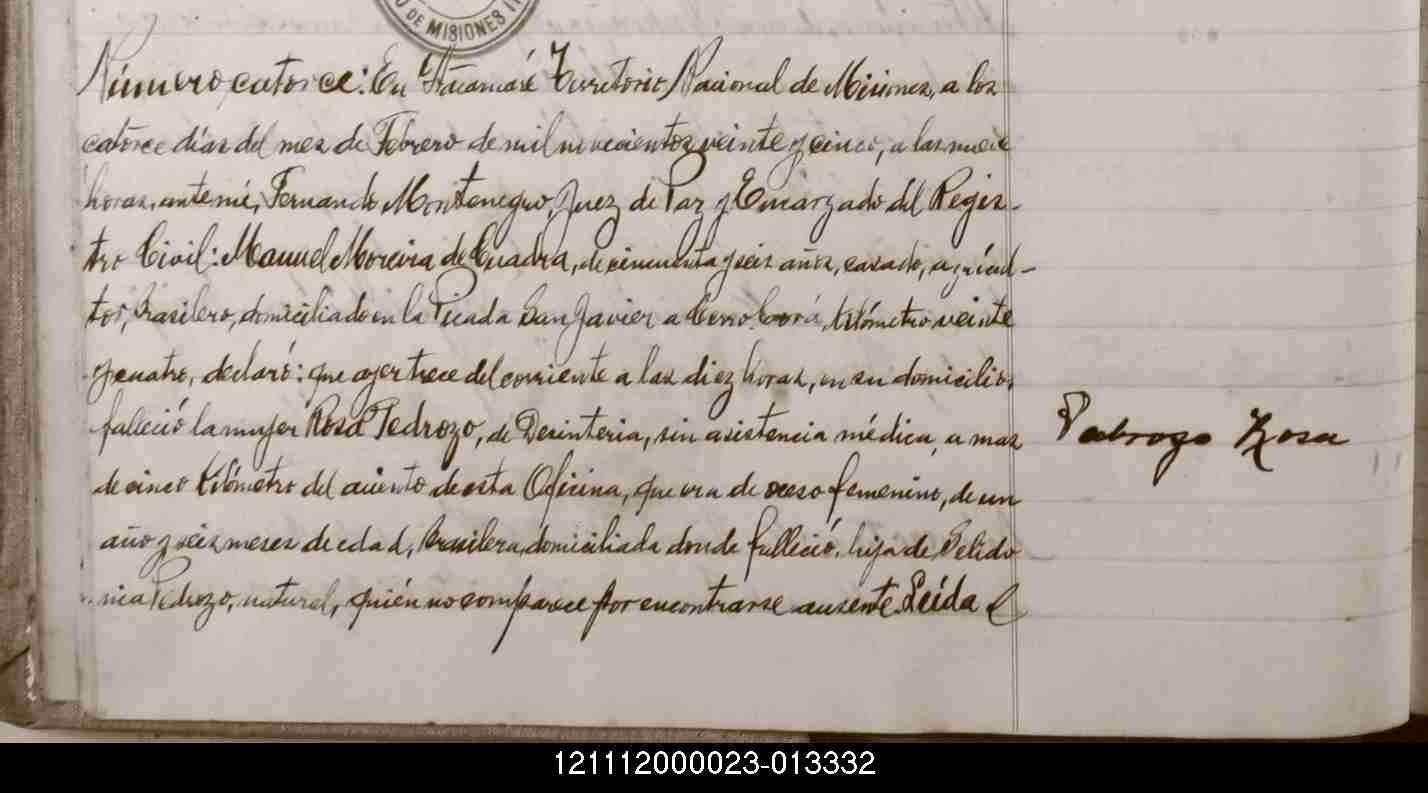 DE MISIONES
Número catorce: En Itacaruaré Territorio Nacional de Misiones, a los
catorce días del mes de Febrero de mil novecientos veinte y cinco, a las nueve
horas, ante mi, Fernando Montenegro, Juez de Paz y Encargado del Regis-
tro Civil: Manuel Moreira de Cuadra, de cincuenta y seis años, casado, agricul-
tor, brasilero, domiciliado en la Picada San Javier a Cerro Corá, kilómetro veinte
y cuatro, declaró: que ayer trece del corriente a las diez horas, en su domicilio,
falleció la mujer Rosa Pedrozo, de Desinteria, sin asistencia médica, a mas
de cinco kilómetro del asiento de esta Oficina, que era de sexo femenino, de un
año y seis meses de edad, brasilera, domiciliada donde falleció, hija de Selido
nia Pedrozo, natural, quién no comparece por encontrarse ausente. Leída
Pedrozo Rosa
121112000023-013332